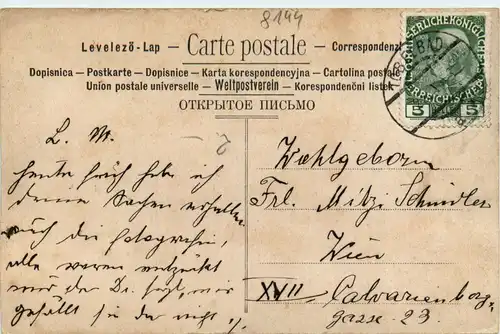 8144
Levelező-Lap — Carte postale — Correspondenz
Dopisnica – Postkarte – Dopisnice – Karta korespondencyjna – Cartolina postale
Union postale universelle – Weltpostverein – Korespondenční listek
ОТКРЫТОЕ ПИСЬМО
5 5
L. M.
heute früh habe ich
deine Sachen erhalten
auch die fotografien,
alle waren entzückt
nur der
gefällst du da nicht
Wohlgeboren
Frl. Mitzi Schindler
Wien
XVII Calvarienberg,
gasse 23.